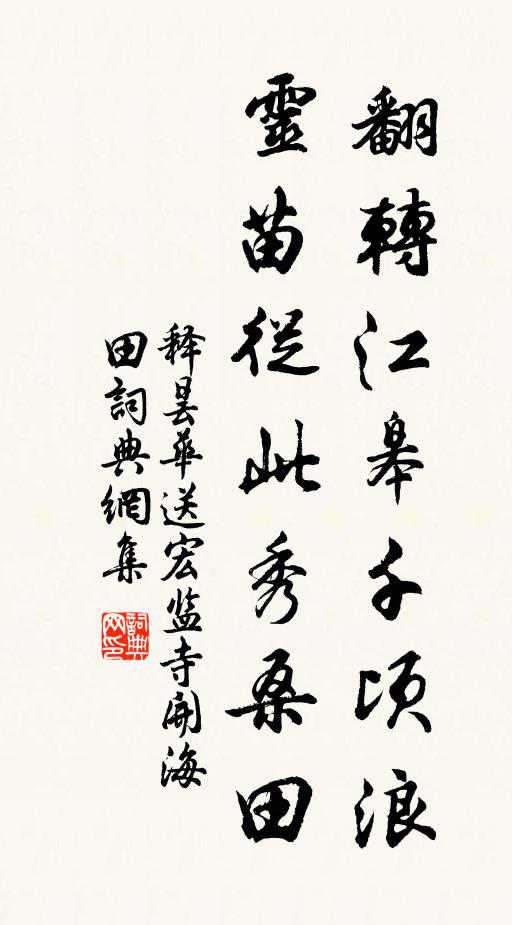 翻轉江皋千頃浪
靈苗從此秀桑田
释曇華送宏监寺開海
田詞典網集
詞典网印